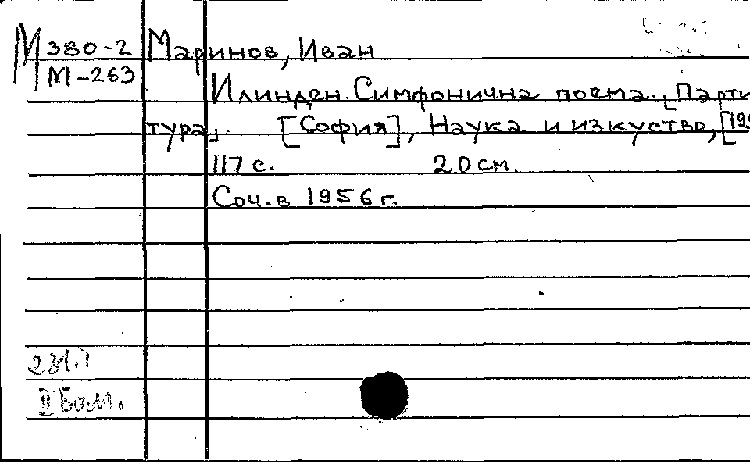 М 380-2 Маринов, Иван
М-263
Илинден. Симфонична поема. [Парти
тура]. [София], Наука и изкуство, [19
117 с. 20 см.
Соч. в 1956 г.
II Бол.